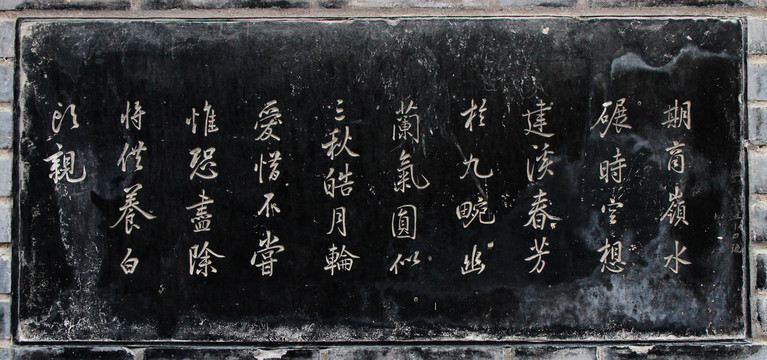 期商嶺水
碾時空想
建溪春芳
於九畹幽
蘭氣圓似
三秋皓月輪
愛惜不嘗
惟恐盡除
將供養白
頭親